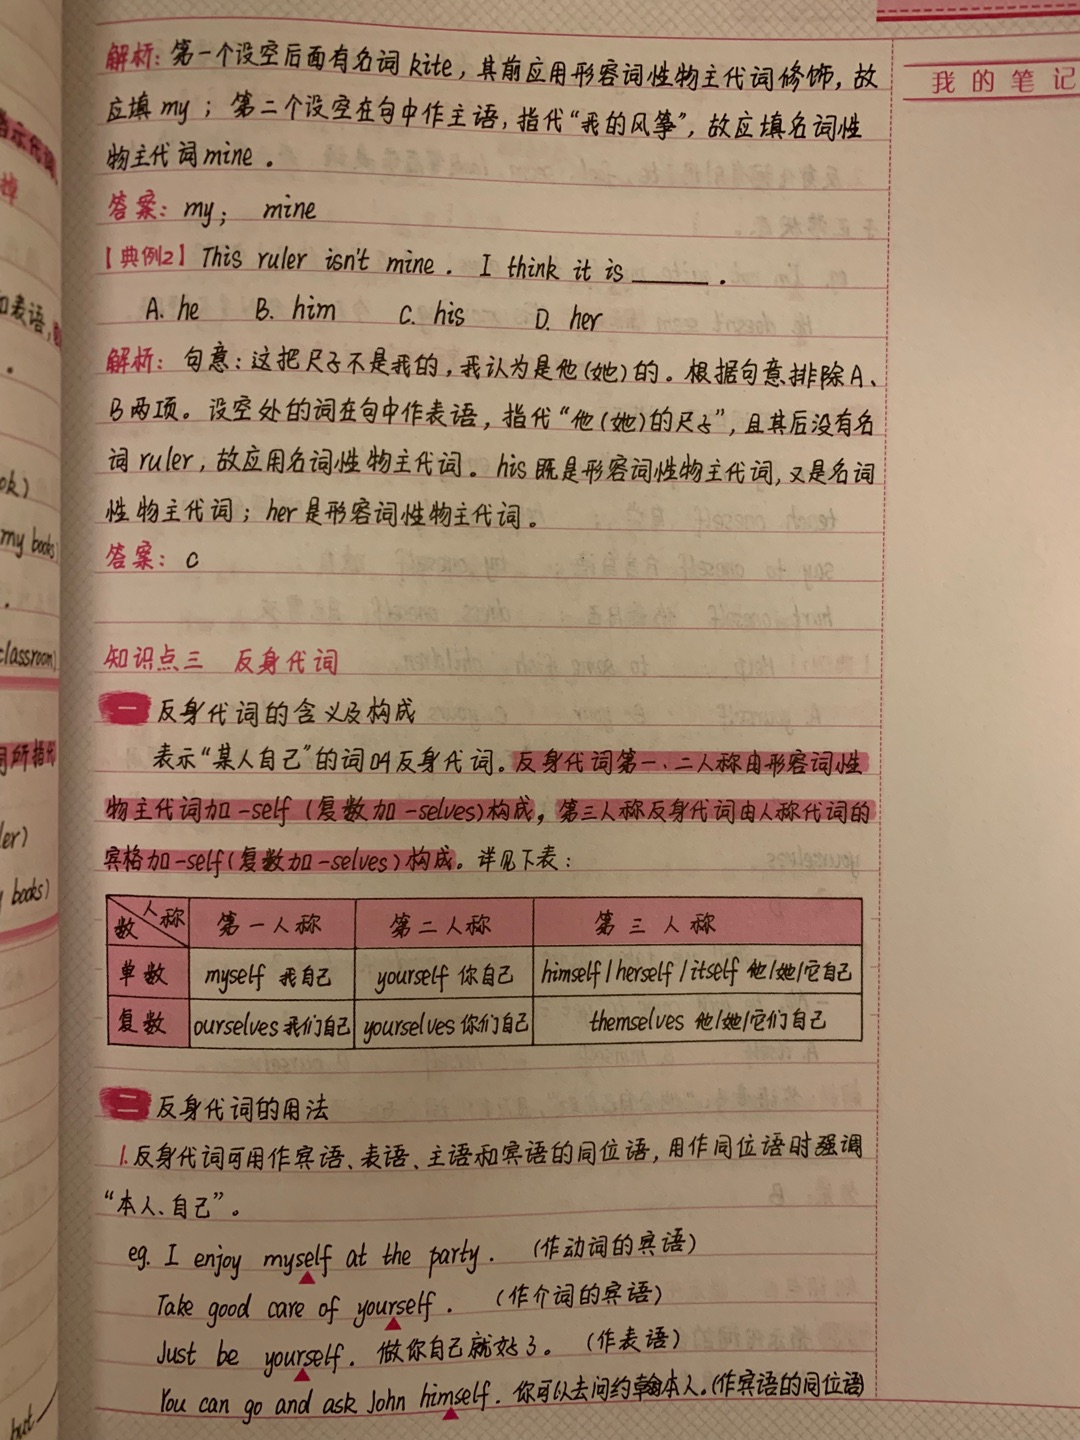 我的笔记
解析：第一个设空后面有名词kite，其前应用形容词性物主代词修饰，故
应填my；第二个设空在句中作主语，指代“我的风筝”，故应填名词性
物主代词mine。
答案：my； mine
【典例2】This ruler isn't mine. I think it is ______.
A. he B. him C. his D. her
解析：句意：这把尺子不是我的，我认为是他(她)的。根据句意排除A、
B两项。设空处的词在句中作表语，指代“他(她)的尺子”，且其后没有名
词ruler，故应用名词性物主代词。his既是形容词性物主代词，又是名词
性物主代词；her是形容词性物主代词。
答案：C
知识点三 反身代词
一 反身代词的含义及构成
表示“某人自己”的词叫反身代词。反身代词第一、二人称由形容词性
物主代词加-self（复数加-selves)构成，第三人称反身代词由人称代词的
宾格加-self(复数加-selves)构成。详见下表：
人称 数 第一人称 第二人称 第三人称
单数 myself 我自己 yourself 你自己 himself/herself/itself 他/她/它自己
复数 ourselves 我们自己 yourselves 你们自己 themselves 他/她/它们自己
二 反身代词的用法
1.反身代词可用作宾语、表语、主语和宾语的同位语，用作同位语时强调
“本人、自己”。
eg. I enjoy myself at the party. （作动词的宾语）
Take good care of yourself. （作介词的宾语）
Just be yourself. 做你自己就好了。（作表语）
You can go and ask John himself. 你可以去问约翰本人。(作宾语的同位语)
ok)
my books)
classroom)
同所指代
ler)
books)
but